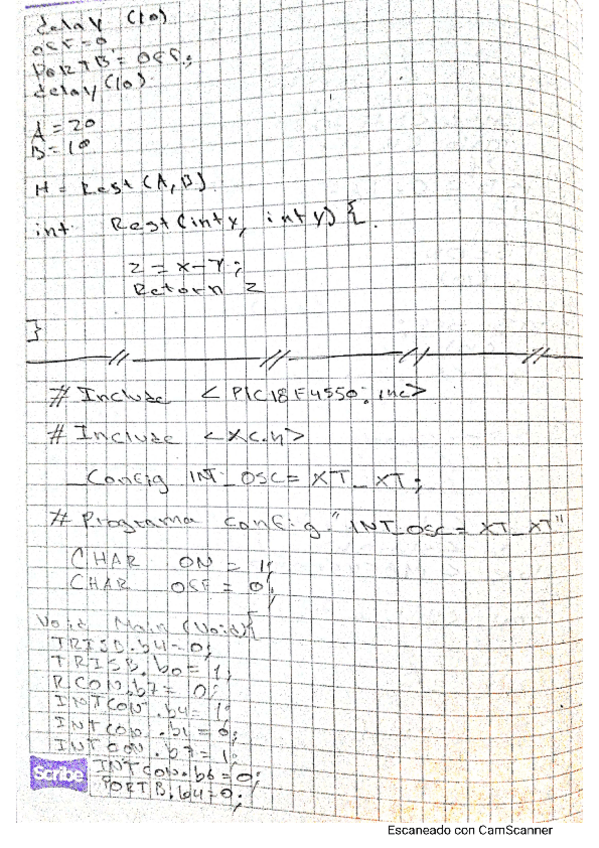 delay (10)
OFF=0;
PORTB= OFF;
delay(10)
A=20
B=10
H = Rest(A,B)
int Rest(int x, int y) {
z = x-y;
Retorn z
}
# Include < PIC18F4550.inc>
# Include <xc.h>
_Config INT_OSC= XT_XT;
# Programa config "INT_OSC= XT_XT"
CHAR ON = 1;
CHAR OFF = 0;
Void Main (Void){
TRISD.b4=0;
TRISB.b0=1;
RCON.b7= 0;
INTCON.b4=1;
INTCON.b1=0;
INTCON.b7=1;
INTCON.b6=0;
PORTB.b4=0;
Scribe
Escaneado con CamScanner